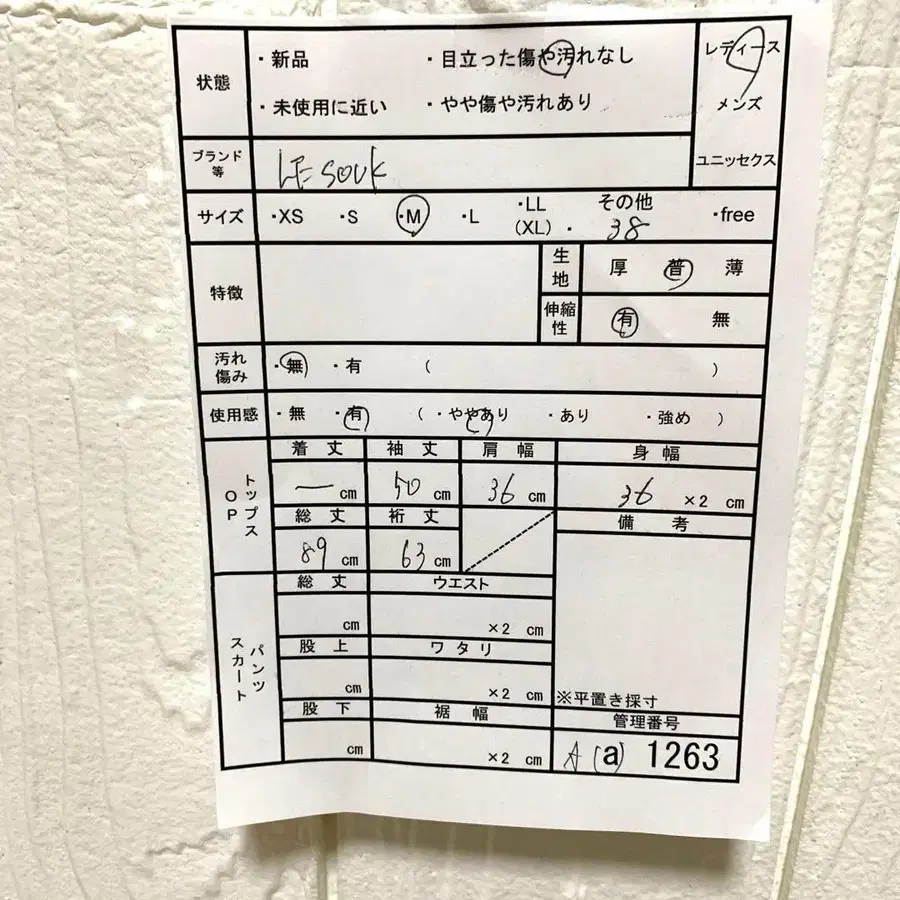 状態
・新品 ・目立った傷や汚れなし
・未使用に近い ・やや傷や汚れあり
レディース
メンズ
ユニッセクス
ブランド等
LE SOUK
サイズ ・XS ・S ・M ・L ・LL (XL) ・ その他 38 ・free
特徴
生地 厚 普 薄
伸縮性 有 無
汚れ傷み ・無 ・有 ( )
使用感 ・無 ・有 ( ・ややあり ・あり ・強め )
トップス
OP
着丈 袖丈 肩幅 身幅
— cm 50 cm 36 cm 36 ×2 cm
総丈 裄丈 備考
89 cm 63 cm
パンツ
スカート
総丈 ウエスト
cm ×2 cm
股上 ワタリ
cm ×2 cm
※平置き採寸
股下 裾幅 管理番号
cm ×2 cm A (a) 1263